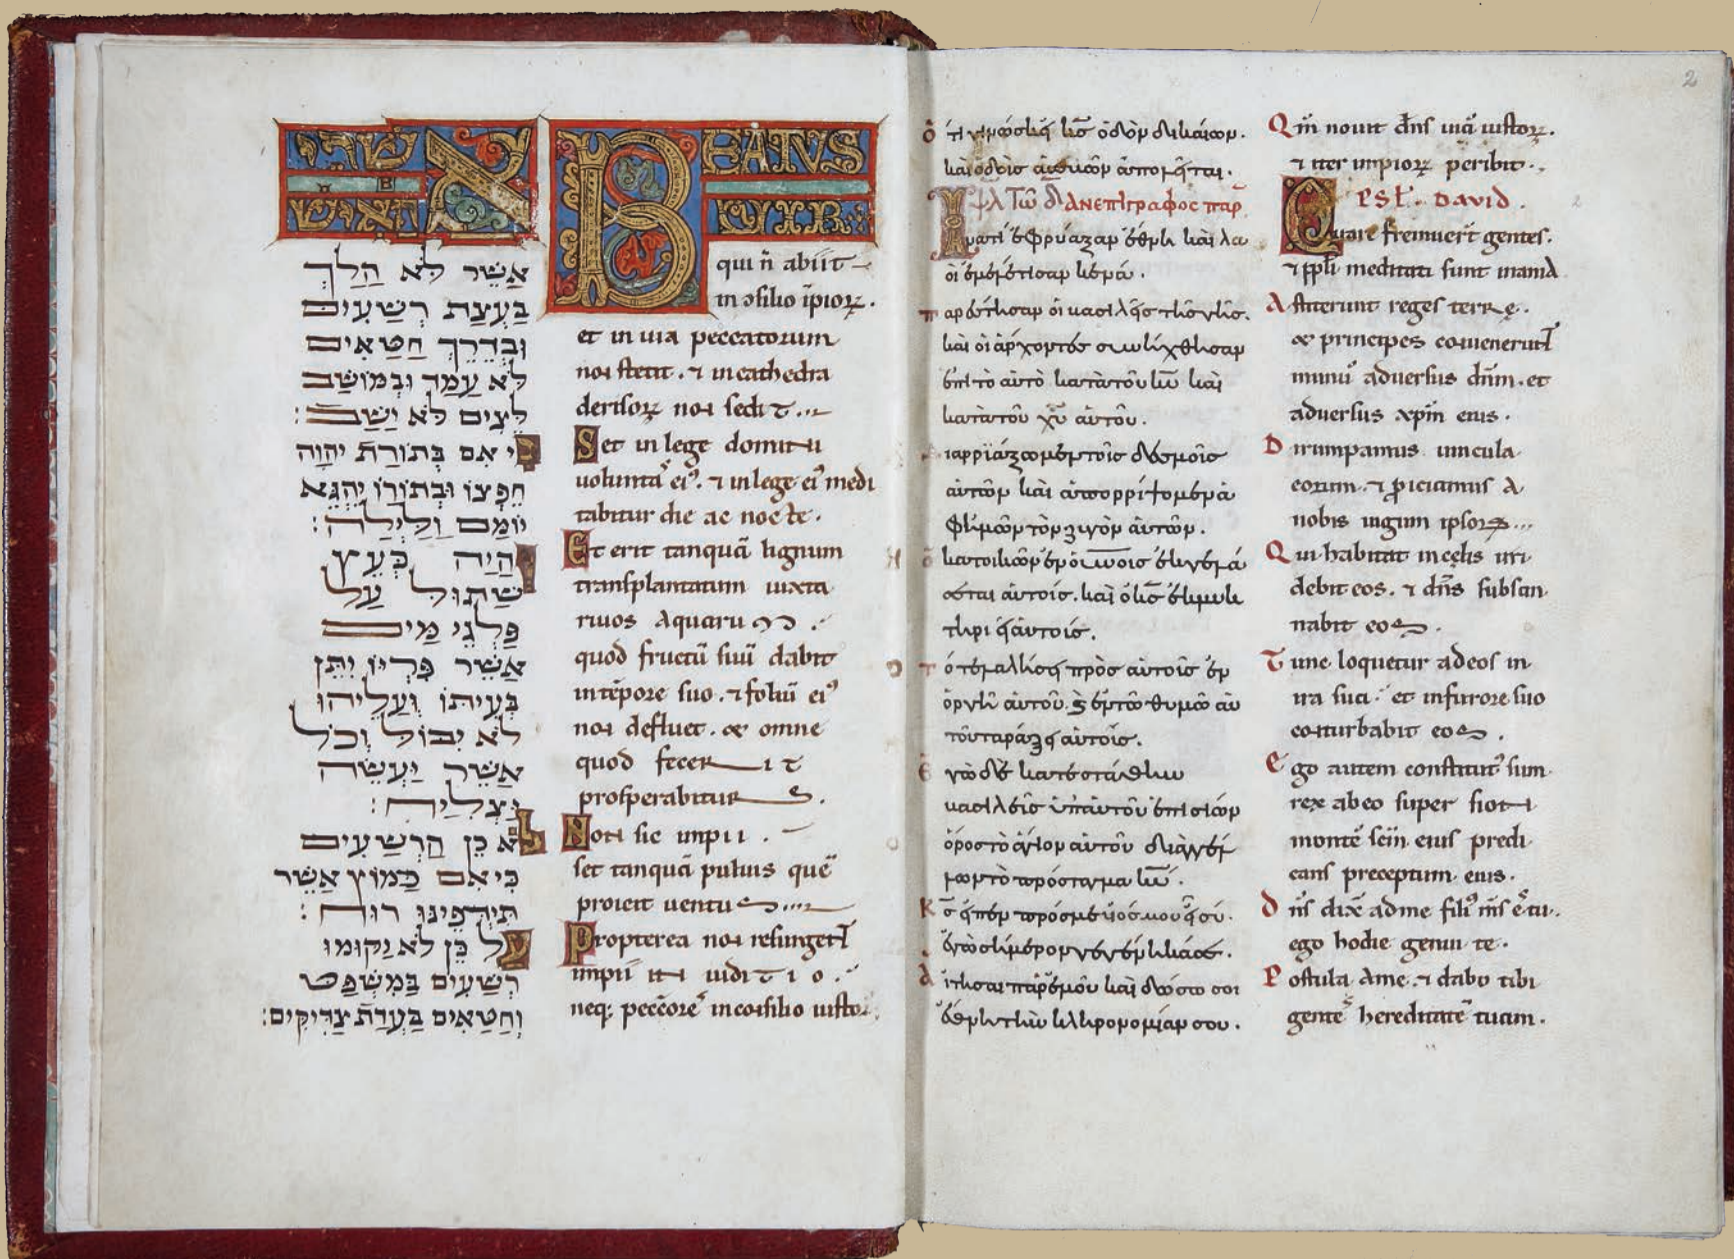 אשרי
האיש
אֲשֶׁר לֹא הָלַךְ
בַּעֲצַת רְשָׁעִים
וּבְדֶרֶךְ חַטָּאִים
לֹא עָמַד וּבְמוֹשַׁב
לֵצִים לֹא יָשָׁב׃
כִּי אִם בְּתוֹרַת יְהוָה
חֶפְצוֹ וּבְתוֹרָתוֹ יֶהְגֶּא
יוֹמָם וָלַיְלָה׃
וְהָיָה כְּעֵץ
שָׁתוּל עַל
פַּלְגֵי מָיִם
אֲשֶׁר פִּרְיוֹ יִתֵּן
בְּעִיתּוֹ וְעָלֵיהוּ
לֹא יִבּוֹל וְכֹל
אֲשֶׁר יַעֲשֶׂה
יַצְלִיחַ׃
לֹא כֵן הָרְשָׁעִים
כִּי אִם כַּמּוֹץ אֲשֶׁר
תִּידְּפֶינּוּ רוּחַ׃
עַל כֵּן לֹא יָקוּמוּ
רְשָׁעִים בַּמִּשְׁפָּט
וְחַטָּאִים בַּעֲדַת צַדִּיקִים׃
BEATVS
VIR
qui n̄ abiit
in ꝯsilio īpioꝝ.
et in uia peccatorum
non stetit. ⁊ in cathedra
derisoꝝ non sedit...
Set in lege domini
uoluntas ei᾽. ⁊ in lege ei᾽ medi
tabitur die ac nocte.
Et erit tanquā lignum
transplantatum iuxta
riuos aquarum.
quod fructū suū dabit
in tēpore suo. ⁊ foliū ei᾽
non defluet. & omne
quod fecerit
prosperabitur.
Non sic impii.
set tanquā puluis quē
proicit uentus
Propterea non resurgent
impii in iuditio.
neq; peccatores in consilio iustoꝝ
2
ὅτι γινώσκει κς̄ ὁδὸν δικαίων.
καὶ ὁδὸς ἀσεβῶν ἀπολεῖται.
ψαλ τῶ δα ἀνεπιγραφος παρ
Ινατί ἐφρύαξαν ἔθνη καὶ λα
οἱ ἐμελέτισαν κενά.
παρέστισαν οἱ βασιλεῖς τῆς γῆς.
καὶ οἱ ἄρχοντες συνήχθησαν
ἐπὶ τὸ αὐτὸ κατὰ τοῦ κῡ καὶ
κατὰ τοῦ χῡ αὐτοῦ.
διαρρίξωμεν τοὺς δεσμοὺς
αὐτῶν καὶ ἀπορρίψομεν ἀ
φ᾽ ἡμῶν τὸν ζυγὸν αὐτῶν.
ὁ κατοικῶν ἐν οὐνοῖς ἐκγελά
σεται αὐτοὺς. καὶ ὁ κς̄ ἐκμυκ
τηριεῖ αὐτούς.
τότε λαλήσει πρὸς αὐτοὺς ἐν
ὀργῇ αὐτοῦ. καὶ ἐν τῶ θυμῶ αὐ
τοῦ ταράξει αὐτούς.
ἐγὼ δὲ κατεστάθην
βασιλεὺς ὑπ᾽ αὐτοῦ ἐπὶ σιὼν
ὄρος τὸ ἅγιον αὐτοῦ διαγγέλ
λων τὸ πρόσταγμα κῡ.
κς̄ εἶπεν πρός με υἱός μου εἶ σύ.
ἐγὼ σήμερον γεγέννηκά σε.
αἴτησαι παρ᾽ ἐμοῦ καὶ δώσω σοι
ἔθνη τὴν κληρονομίαν σου.
Qm̄ nouit dn̄s uiā iustoꝝ.
⁊ iter impioꝝ peribit.
PSL. DAVID.
Quare fremuert̄ gentes.
⁊ ppl̄i meditati sunt inania
Astiterunt reges terrę.
& principes conuenerunt
in unū aduersus dn̄m. et
aduersus xpm̄ eius.
Dirumpamus uincula
eorum. ⁊ ꝓiciamus a
nobis iugum ipsoꝝ...
Qui habitat in cęlis irri
debit eos. ⁊ dn̄s subsan
nabit eos.
Tunc loquetur ad eos in
ira sua. et in furore suo
conturbabit eos.
Ego autem constitut᾽ sum
rex ab eo super sion
montē scm̄ eius predi
cans preceptum eius.
Dn̄s dix̄ ad me fili᾽ m̄s es tu.
ego hodie genui te.
Postula a me. ⁊ dabo tibi
gentes hereditatē tuam.